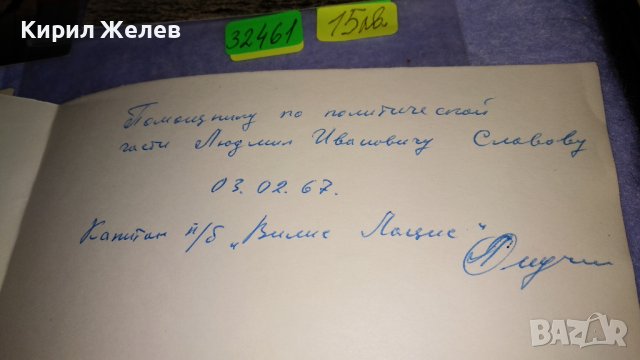 Кирил Желев
32461
15лв.
Помощнику по политической
части Людмил Ивановичу Славову
03.02.67.
Капитан т/б „Вилис Лацис"
BAZAR